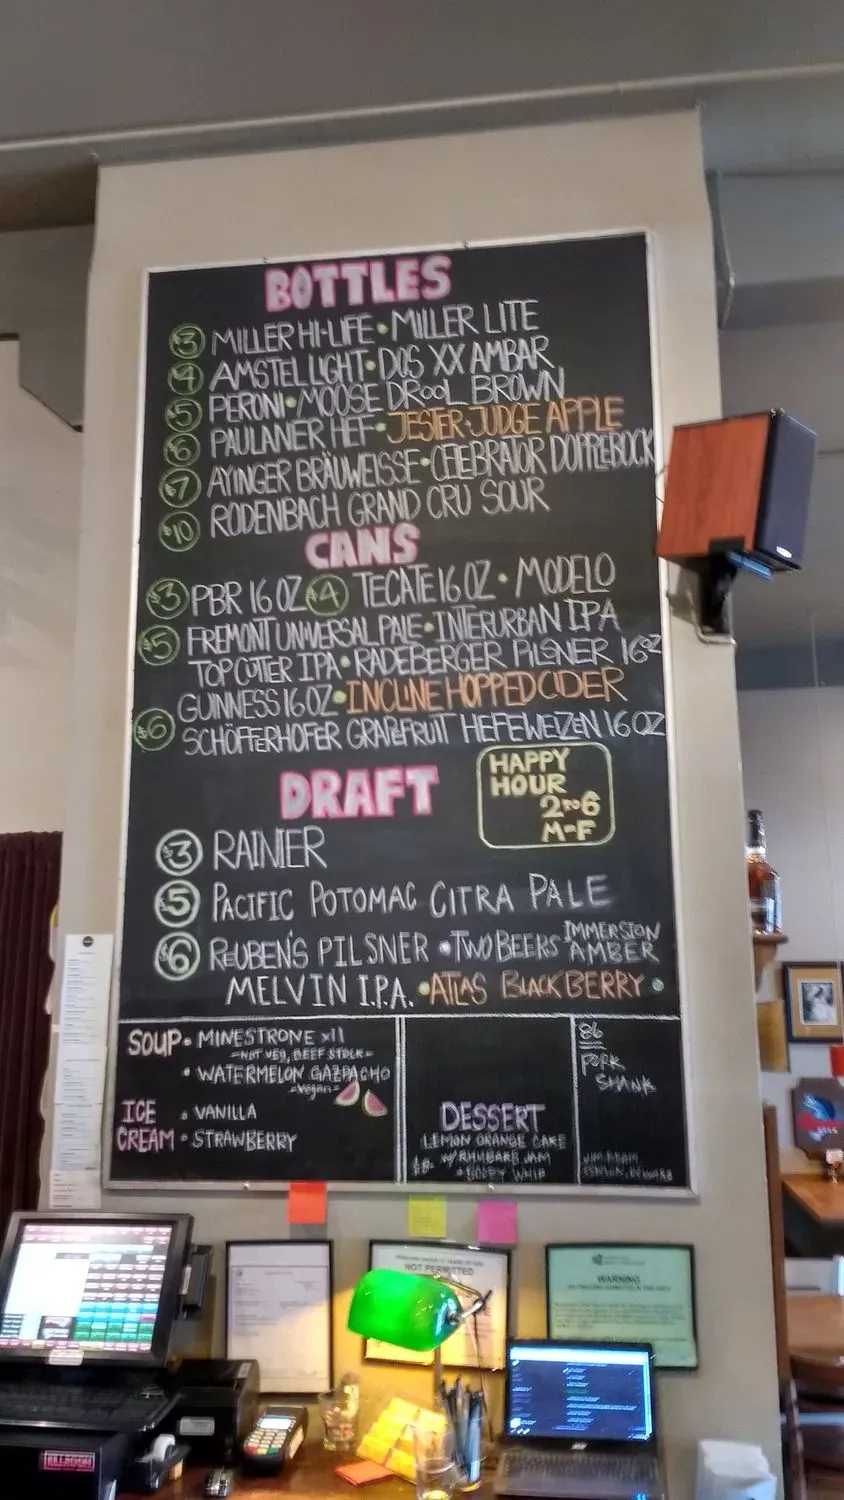 BOTTLES
$3 MILLER HI-LIFE • MILLER LITE
$4 AMSTEL LIGHT • DOS XX AMBAR
$5 PERONI • MOOSE DROOL BROWN
$6 PAULANER HEF • JESTER JUDGE APPLE
$7 AYINGER BRÄUWEISSE • CELEBRATOR DOPPLEBOCK
$10 RODENBACH GRAND CRU SOUR
CANS
$3 PBR 16 OZ $4 TECATE 16 OZ • MODELO
$5 FREMONT UNIVERSAL PALE • INTERURBAN IPA
TOP CUTTER IPA • RADEBERGER PILSNER 16OZ
GUINNESS 16 OZ • INCLINE HOPPED CIDER
$6 SCHÖFFERHOFER GRAPEFRUIT HEFEWEIZEN 16 OZ
DRAFT
HAPPY
HOUR
2 TO 6
M-F
$3 RAINIER
$5 PACIFIC POTOMAC CITRA PALE
$6 REUBEN'S PILSNER • TWO BEERS IMMERSION AMBER
MELVIN I.P.A. • ATLAS BLACKBERRY •
SOUP • MINESTRONE x11
-NOT VEG, BEEF STOCK-
• WATERMELON GAZPACHO
-vegan-
ICE CREAM • VANILLA
• STRAWBERRY
DESSERT
LEMON ORANGE CAKE
W/ RHUBARB JAM
$8-
WHIP
86
PORK
SHANK
JIM BEAM
NOT PERMITTED
WARNING